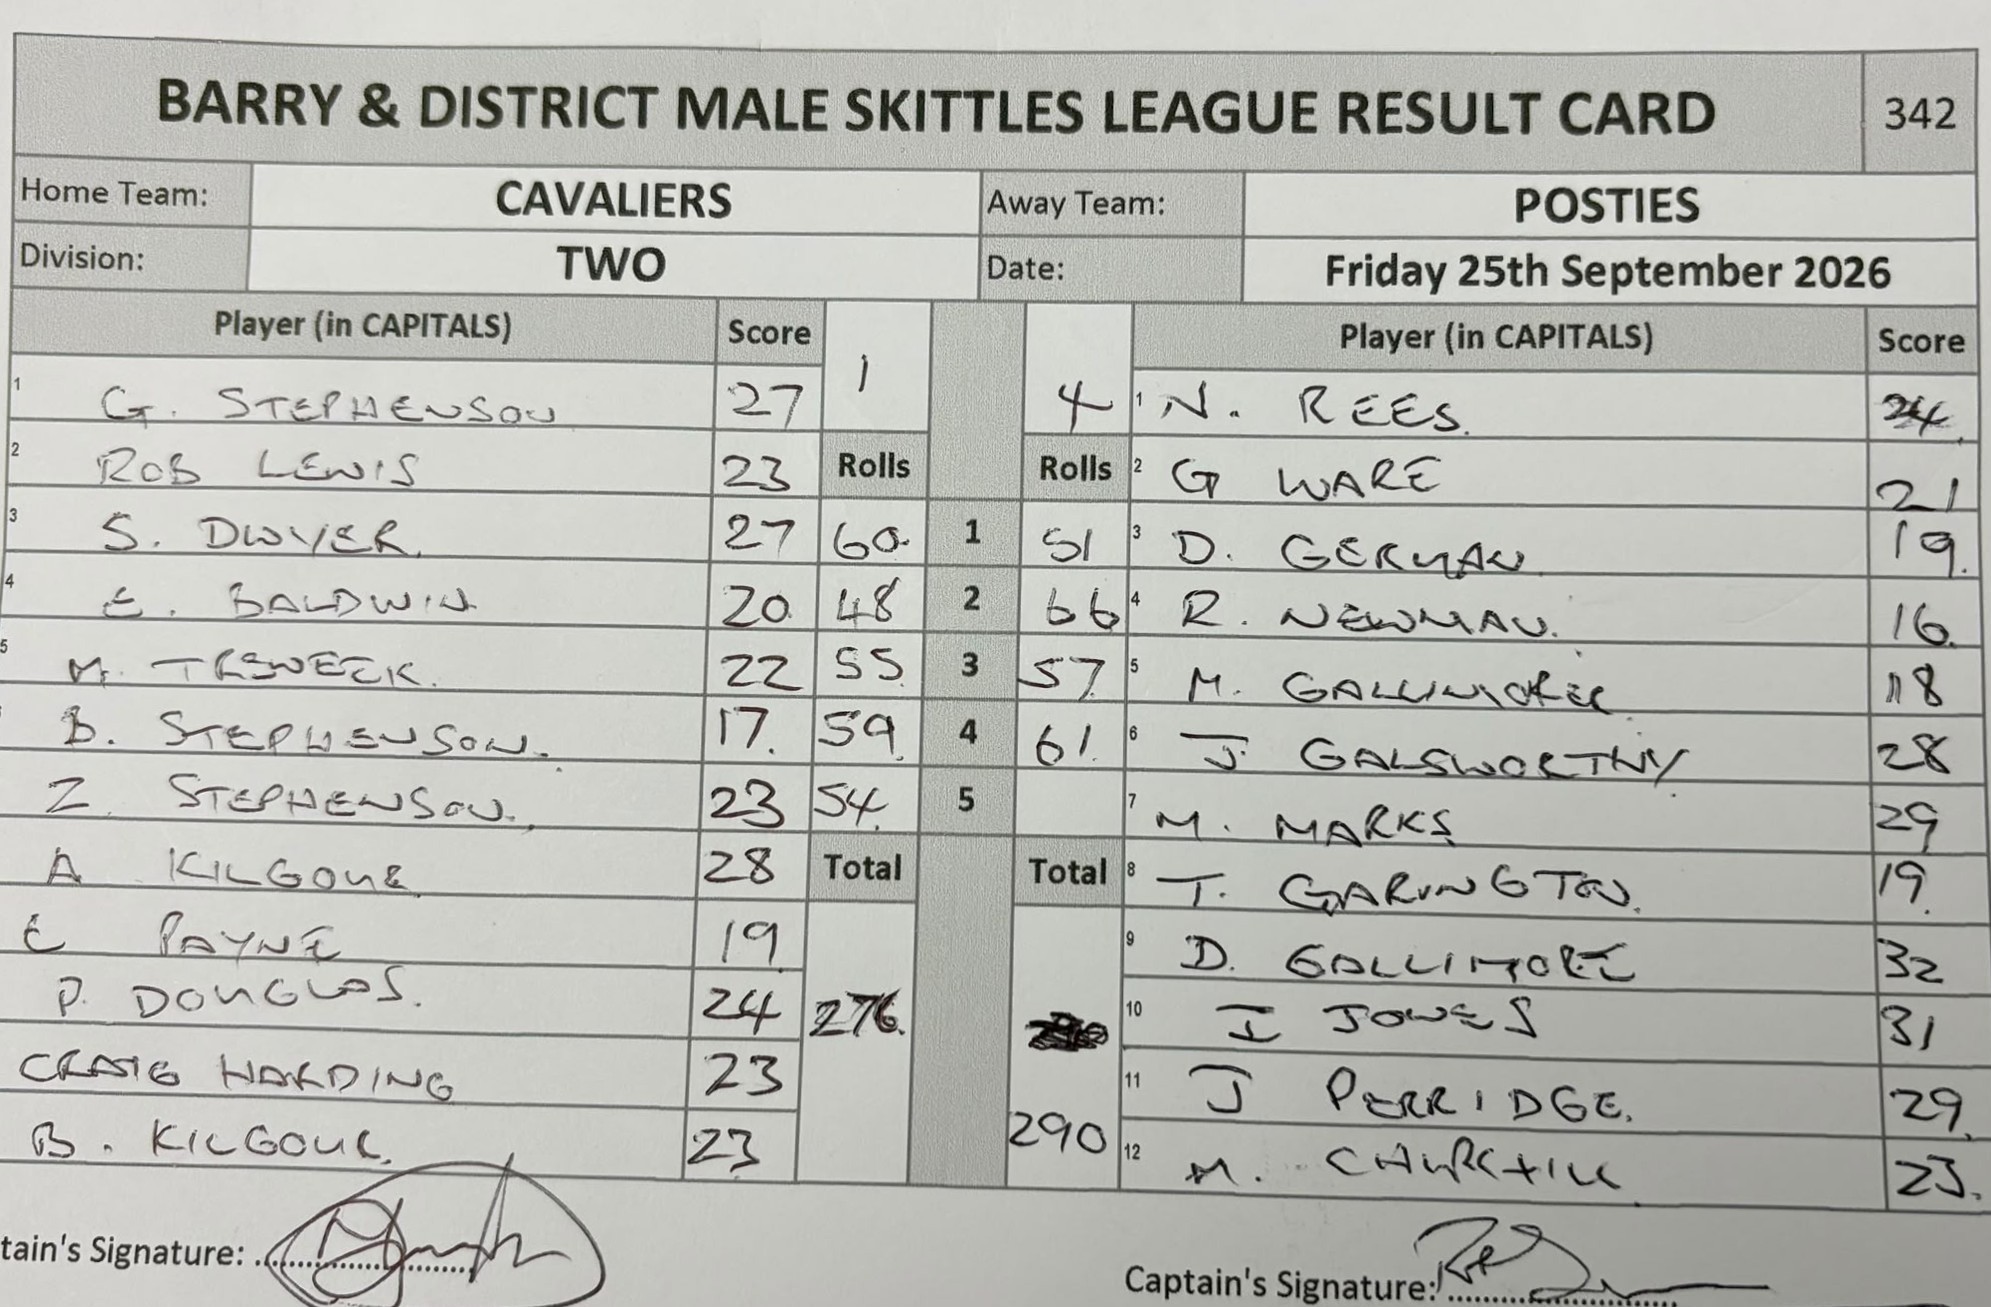 BARRY & DISTRICT MALE SKITTLES LEAGUE RESULT CARD 342
Home Team: CAVALIERS Away Team: POSTIES
Division: TWO Date: Friday 25th September 2026
Player (in CAPITALS) Score 1 4 Player (in CAPITALS) Score
1 G. STEPHENSON 27 1 N. REES. 24
2 ROB LEWIS 23 Rolls Rolls 2 G WARE 21
3 S. DWYER. 27 60. 1 51 3 D. GERMAN 19.
4 E. BALDWIN 20 48 2 66 4 R. NEWMAN. 16.
5 M. TRSWEEK. 22 55 3 57 5 M. GALLIMORE 18
B. STEPHENSON. 17. 59 4 61. 6 J GALSWORTHY 28
Z STEPHENSON. 23 54. 5 7 M. MARKS 29
A KILGOUR 28 Total Total 8 T. GARINGTON. 19.
E PAYNE 19 9 D. GALLIMORE 32
P. DOUGLAS. 24 276. 10 I JONES 31
CRAIG HARDING 23 11 J PERRIDGE. 29.
B. KILGOUR. 23 290 12 M. CHURCHILL 23.
tain's Signature: Captain's Signature: